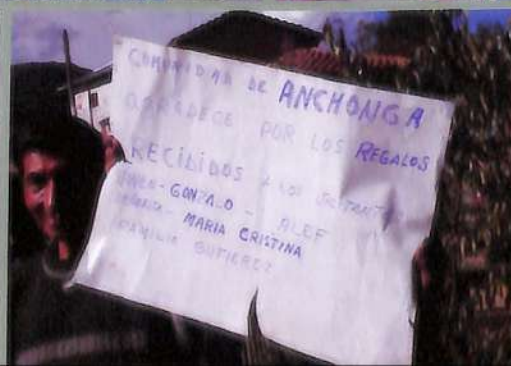 COMUNIDAD DE ANCHONGA
AGRADECE POR LOS REGALOS
RECIBIDOS A LOS
GONZALO - ALEF
MARIA CRISTINA
FAMILIA GUTIERREZ